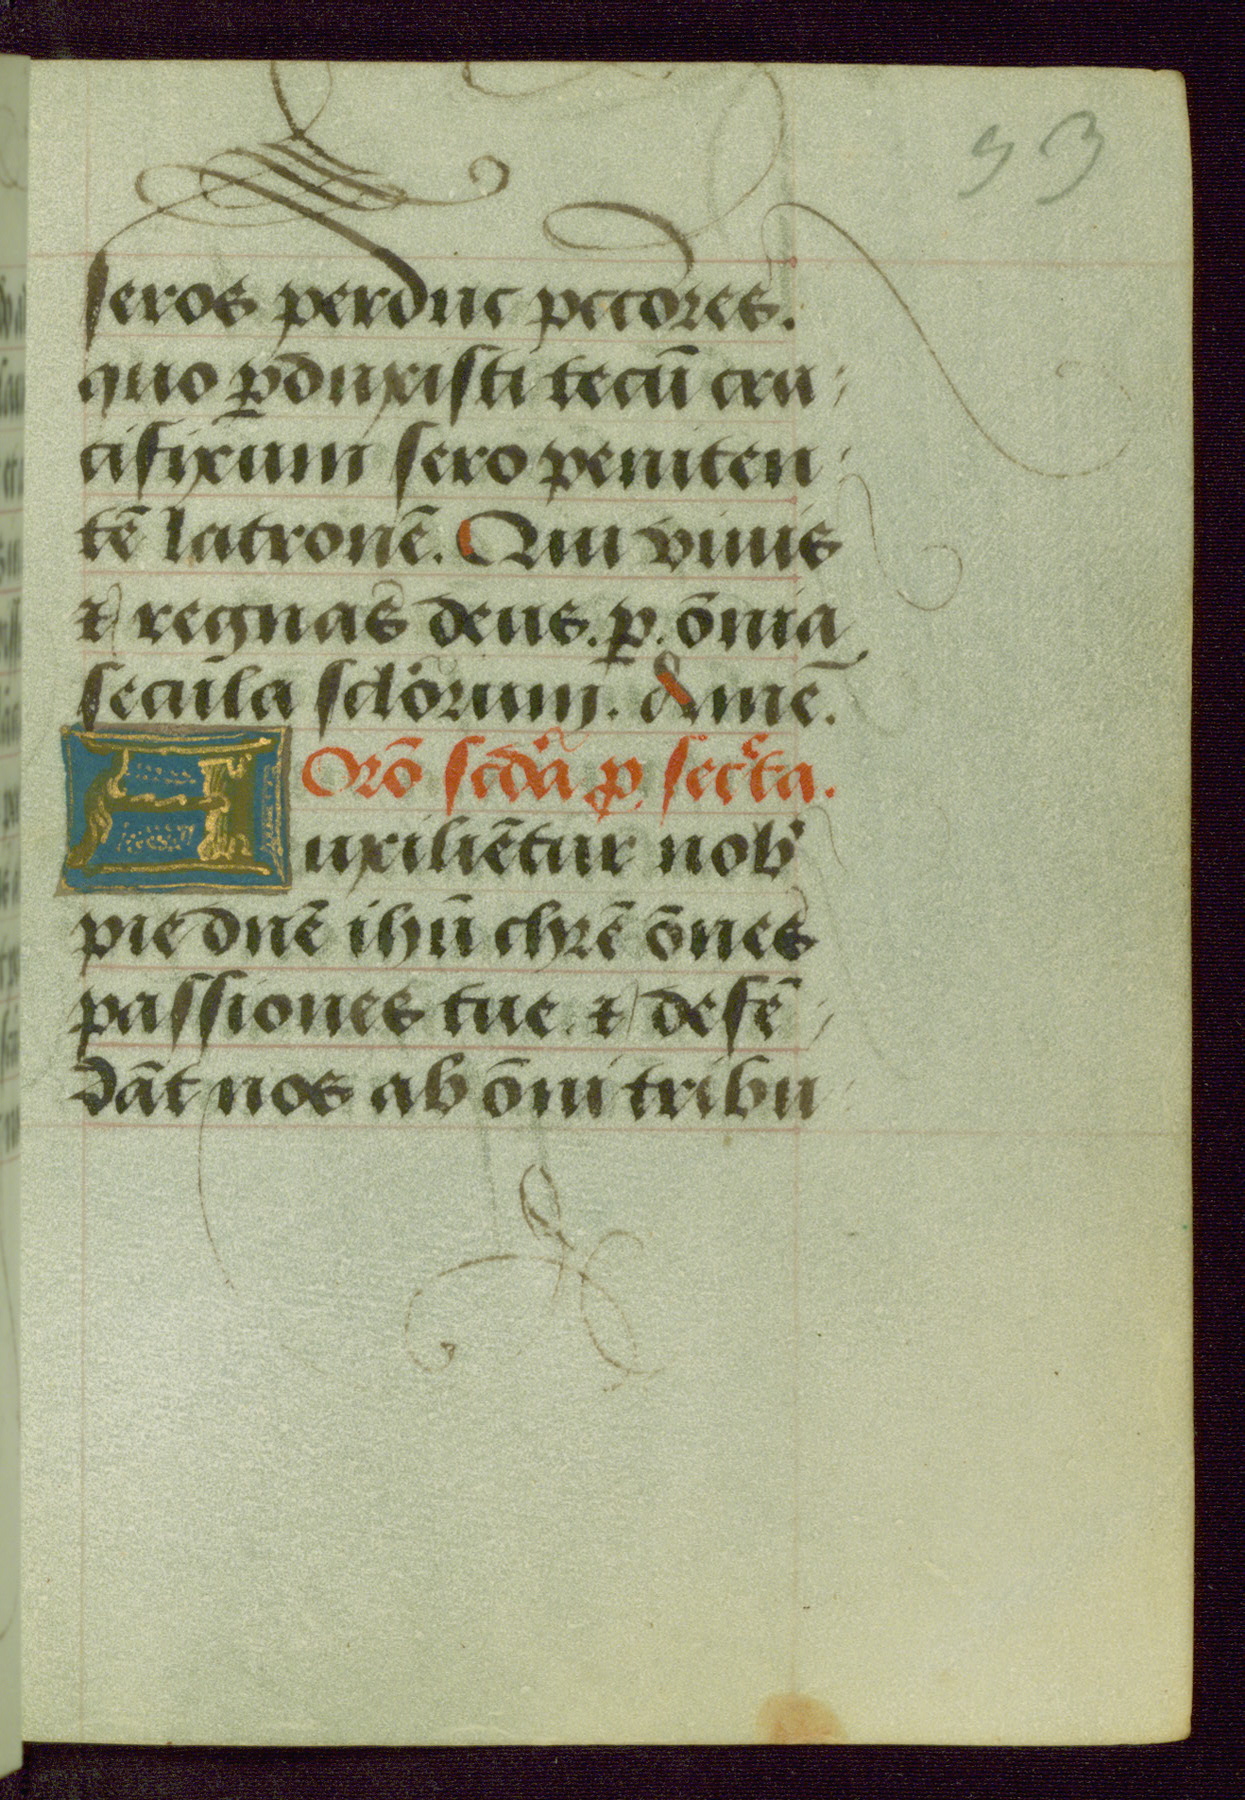 53
seros perduc pctores.
quo ꝑduxisti tecū cru
cifixum sero peniten
tē latronē. Qui viuis
⁊ regnas deus. ꝑ. ōnia
secula sclorum. Amē.
Orō scda ꝑ. secta.
Auxiliētur nob
pie dnē ihū chrē ōnes
passiones tue. ⁊ defē
dāt nos ab ōni tribu